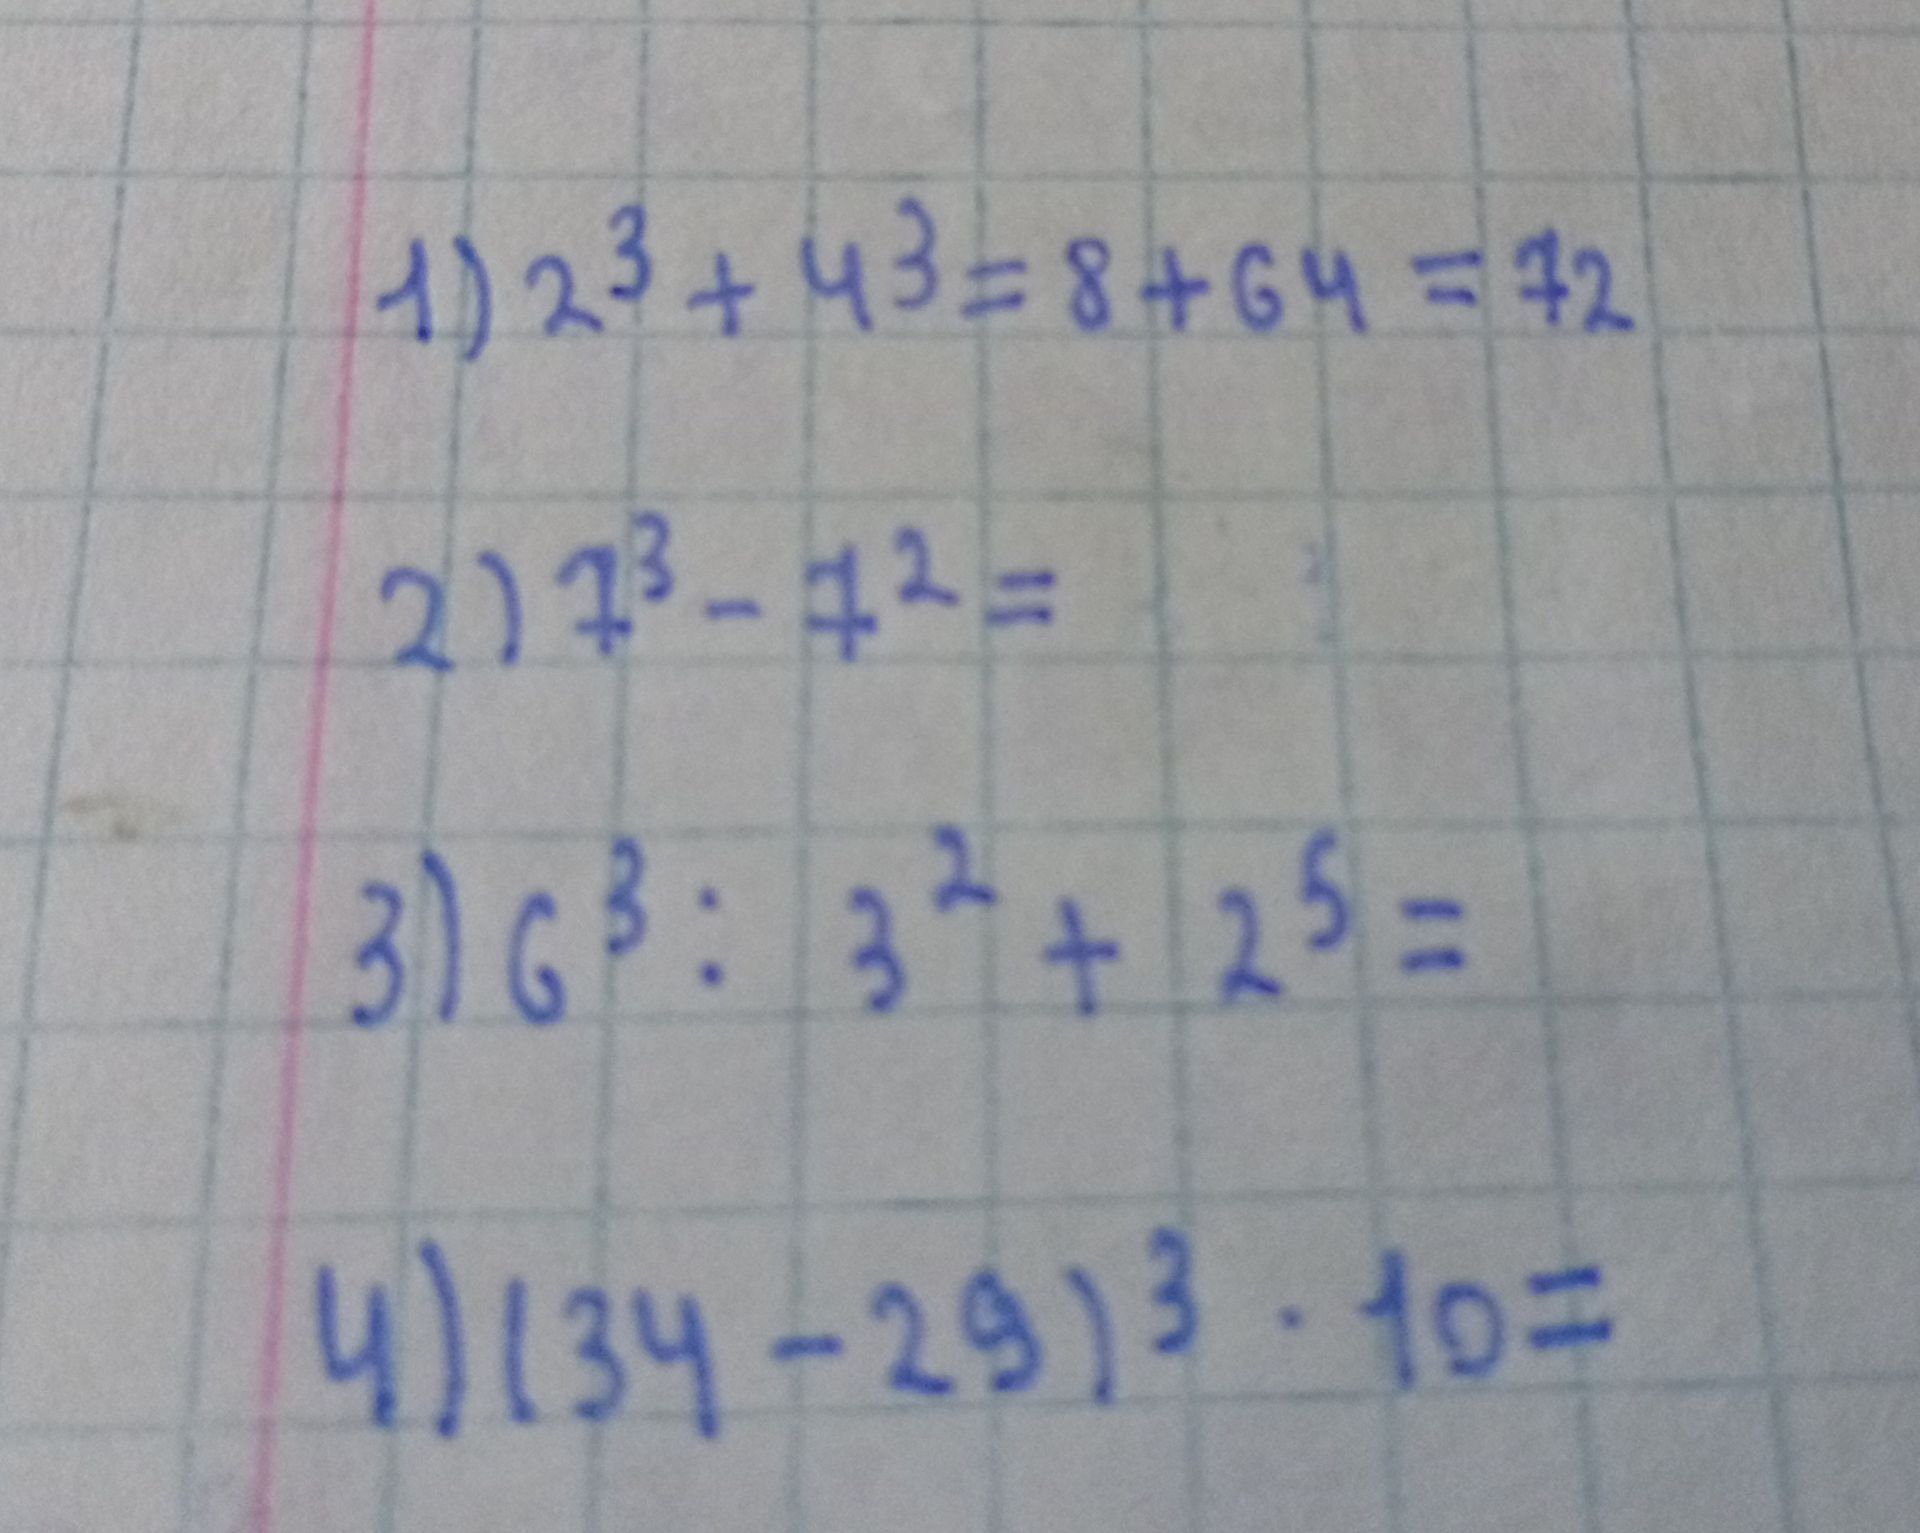 1) 2³ + 4³ = 8 + 64 = 72
2) 7³ - 7² =
3) 6³ : 3² + 2⁵ =
4) (34 - 29)³ · 10 =